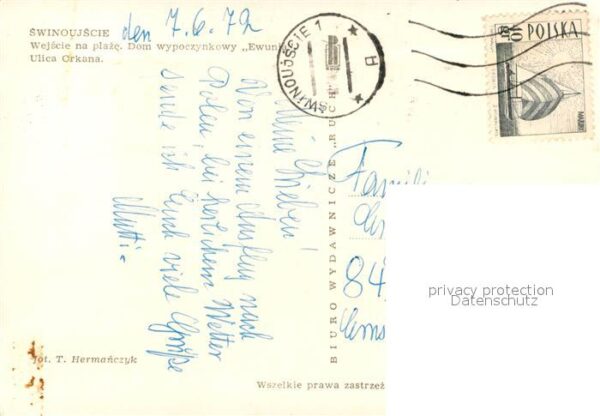 ŚWINOUJŚCIE
Wejście na plażę. Dom wypoczynkowy „Ewunia
Ulica Orkana.
den 7.6.72
ŚWINOUJŚCIE 1
B
POLSKA
Meine Lieben!
Von einem Ausflug nach
Polen, bei herrlichem Wetter
sende ich Euch viele Grüße
Mutti.
BIURO WYDAWNICZE „RUCH
Famili
84
privacy protection
Datenschutz
fot. T. Hermańczyk
Wszelkie prawa zastrzeż